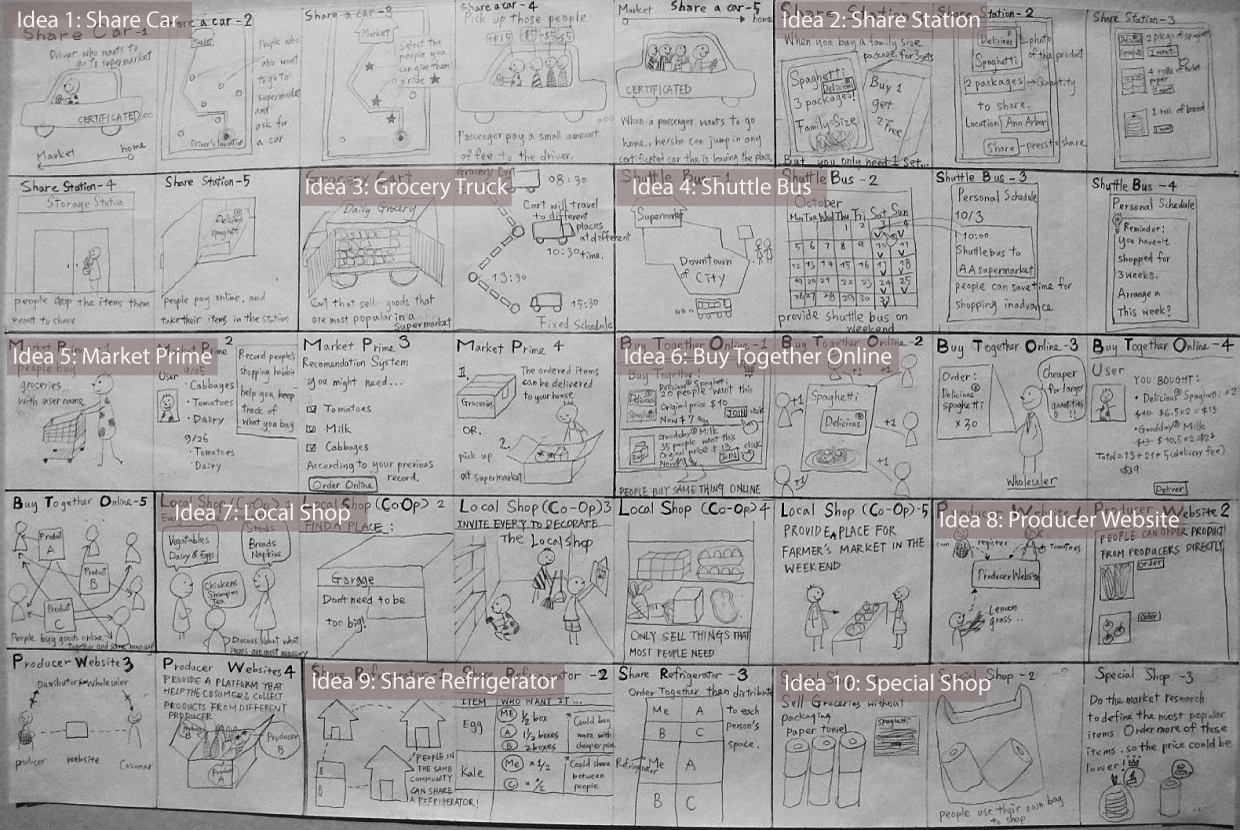 Idea 1: Share Car
Share Car-1
Driver who wants to
go to supermarket
CERTIFICATED
Market
home
Share a car-2
Market
People who
also want
to go to
supermarket
and
ask for
a car
Driver's location
Share a car-3
Market
Select the
people you
can give them
a ride
Share a car-4
Pick up those people
+$15 -$5 -$5 -$5
Passenger pay a small amount
of fee to the driver.
Share a car-5
Market
home
CERTIFICATED
When a passenger wants to go
home, he/she can jump in any
certificated car tha is leaving the place
Idea 2: Share Station
When you buy a family size
package for 3 sets
Spaghetti
Delicious
3 packages!
Family Size
Buy 1
get
2 Free
But you only need 1 set...
Station-2
Delicious
Spaghetti
photo
of the product
2 packages
Quantity
to share.
Location
Ann Arbor
Share
press to share
Share Station-3
2 pkgs of spaghetti
I want
4 rolls of toilet
paper
I want
1 roll of bread
I want
Share Station-4
Storage Station
people drop the items them
want to share
Share Station-5
Delicious
Spaghetti
people pay online, and
take their items in the station
Idea 3: Grocery Truck
Grocery Cart
Daily Grocery
Cart that sell goods that
are most popular in a
supermarket
Grocery Cart
08:30
Cart will travel
to different
places
at different
time.
10:30
13:30
15:30
Fixed Schedule
Idea 4: Shuttle Bus
Shuttle Bus-1
Supermarket
Downtown
of City
Shuttle Bus-2
October
Mon Tue Wed Thu Fri Sat Sun
1 2 3 4
5 6 7 8 9 10 11
12 13 14 15 16 17 18
19 20 21 22 23 24 25
26 27 28 29 30 31
provide shuttle bus on
weekend
Shuttle Bus-3
Personal Schedule
10/3
10:00
Shuttlebus to
AA supermarket
people can save time for
shopping in advance
Shuttle Bus-4
Personal Schedule
Reminder:
You haven't
shopped for
3 weeks.
Arrange a
This week?
Idea 5: Market Prime
Market Prime 1
people buy
groceries
with user name
Market Prime 2
9/05
User
• Cabbages
• Tomatoes
• Dairy
9/26
• Tomatoes
• Dairy
Record people's
shopping habbit
help you keep
track of
what you buy
Market Prime 3
Recomendation System
you might need...
Tomatoes
Milk
Cabbages
According to your previous
record.
Order Online
Market Prime 4
1.
Groceries
The ordered items
can be delivered
to your house
OR.
2.
pick up
at supermarket
Idea 6: Buy Together Online
Buy Together Online-1
Buy Together!
Delicious Spaghetti
20 people want this
JOIN
35 people want this
JOIN
PEOPLE BUY SAME THING ONLINE
Buy Together Online-2
+1
+1
Spaghetti
Delicious
+1
+1
+1
+1
Buy Together Online-3
Order:
Delicious
Spaghetti
x 30
Cheaper
for larger
quantities
!!
Wholesaler
Buy Together Online-4
User
YOU BOUGHT:
• Delicious Spaghetti x2
$6.5x2=$13
• Milk x2
$10.5x2=$21
Total=13+21+5(delivery fee)
$39
Deliver
Buy Together Online-5
Product
A
Product
B
Product
C
People buy goods online
together and save money
Idea 7: Local Shop
Local Shop (Co-Op)
Vegatables
Dairy & Eggs
Steaks
Breads
Napkins
Chickens
Shampoo
Tea
Discuss about what
items are most necessary
Local Shop (Co-Op) 2
FIND A PLACE:
Garage
Don't need to be
too big!
Local Shop (Co-Op) 3
INVITE EVERY TO DECORATE
The Local Shop
Local Shop (Co-Op) 4
ONLY SELL THINGS THAT
MOST PEOPLE NEED
Local Shop (Co-Op)-5
PROVIDE A PLACE FOR
FARMER'S MARKET IN THE
WEEKEND
Idea 8: Producer Website
Producer Website 1
Corn
register
Tomatoes
Producer Website
Lemon
grass..
Producer Website 2
PEOPLE CAN ORDER PRODUCT
FROM PRODUCERS DIRECTLY
Order
Order
Producer Website 3
Distributor
Wholesaler
producer
website
Cosumer
Producer Websites 4
PROVIDE A PLATFORM THAT
HELP THE COSUMERS COLLECT
PRODUCTS FROM DIFFERENT
PRODUCER
Product
B
Producer
B
Product
A
Idea 9: Share Refrigerator
Share Refrigerator-1
PEOPLE IN
THE SAME
COMMUNITY
CAN SHARE
A REFRIGERATOR!
Share Refrigerator-2
ITEM
WHO WANT IT...
Egg
ME ½ box
A 1½ boxes
B 2 boxes
*Could buy
more with
cheaper price
Kale
Me x ½
C x ½
*Could share
between
people
Share Refrigerator-3
Order Together then distribute
to each
person's
space.
Me A
B C
Refrigerator
Me A
B C
Idea 10: Special Shop
Sell Groceries without
packaging
Paper towel
Spaghetti
Special Shop-2
people use their own bag
to shop
Special Shop-3
Do the market research
to define the most popular
items. Order more of those
items, so the price could be
lower!